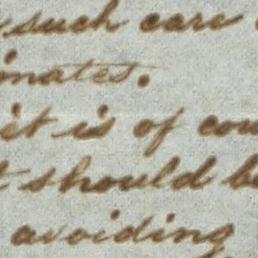 such care
inates.
it is of cou
t should be
avoiding